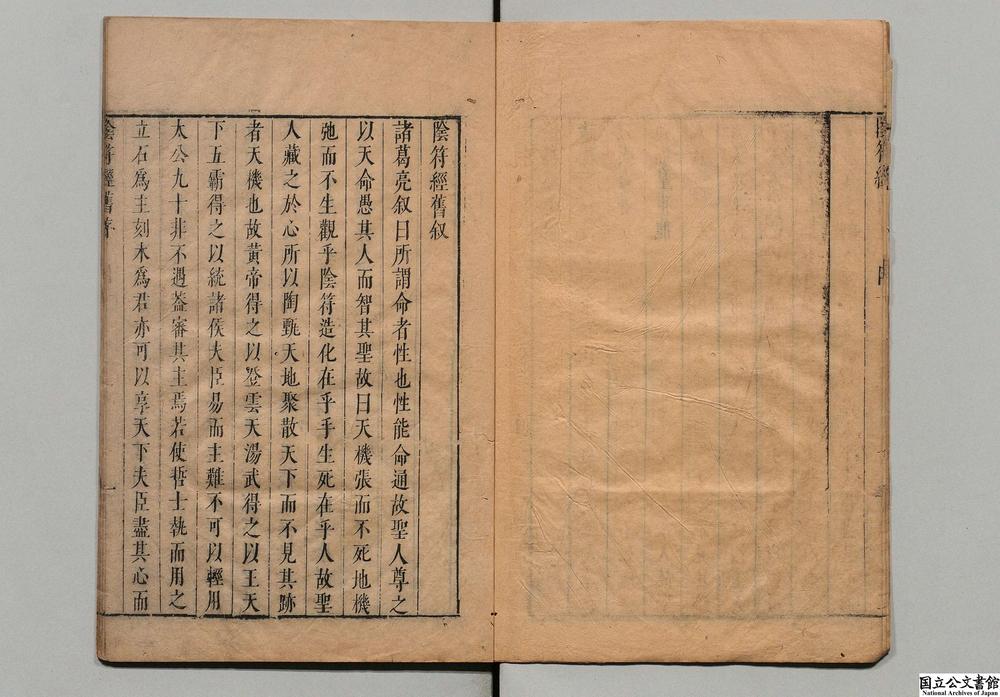 陰符經
陰符經舊叙
諸葛亮叙曰所謂命者性也性能命通故聖人尊之
以天命愚其人而智其聖故曰天機張而不死地機
弛而不生觀乎陰符造化在乎手生死在乎人故聖
人藏之於心所以陶甄天地聚散天下而不見其跡
者天機也故黃帝得之以登雲天湯武得之以王天
下五霸得之以統諸侯夫臣易而主難不可以輕用
太公九十非不遇葢審其主焉若使哲士執而用之
立石爲主刻木爲君亦可以享天下夫臣盡其心而
陰符經舊序
一
国立公文書館
National Archives of Japan